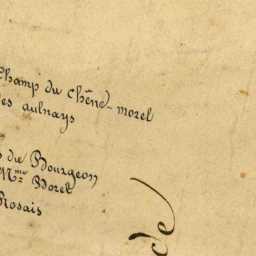 champ du chêne-morel
les aulnays
du Bourgeon
Mme Boret
Rosais
cle